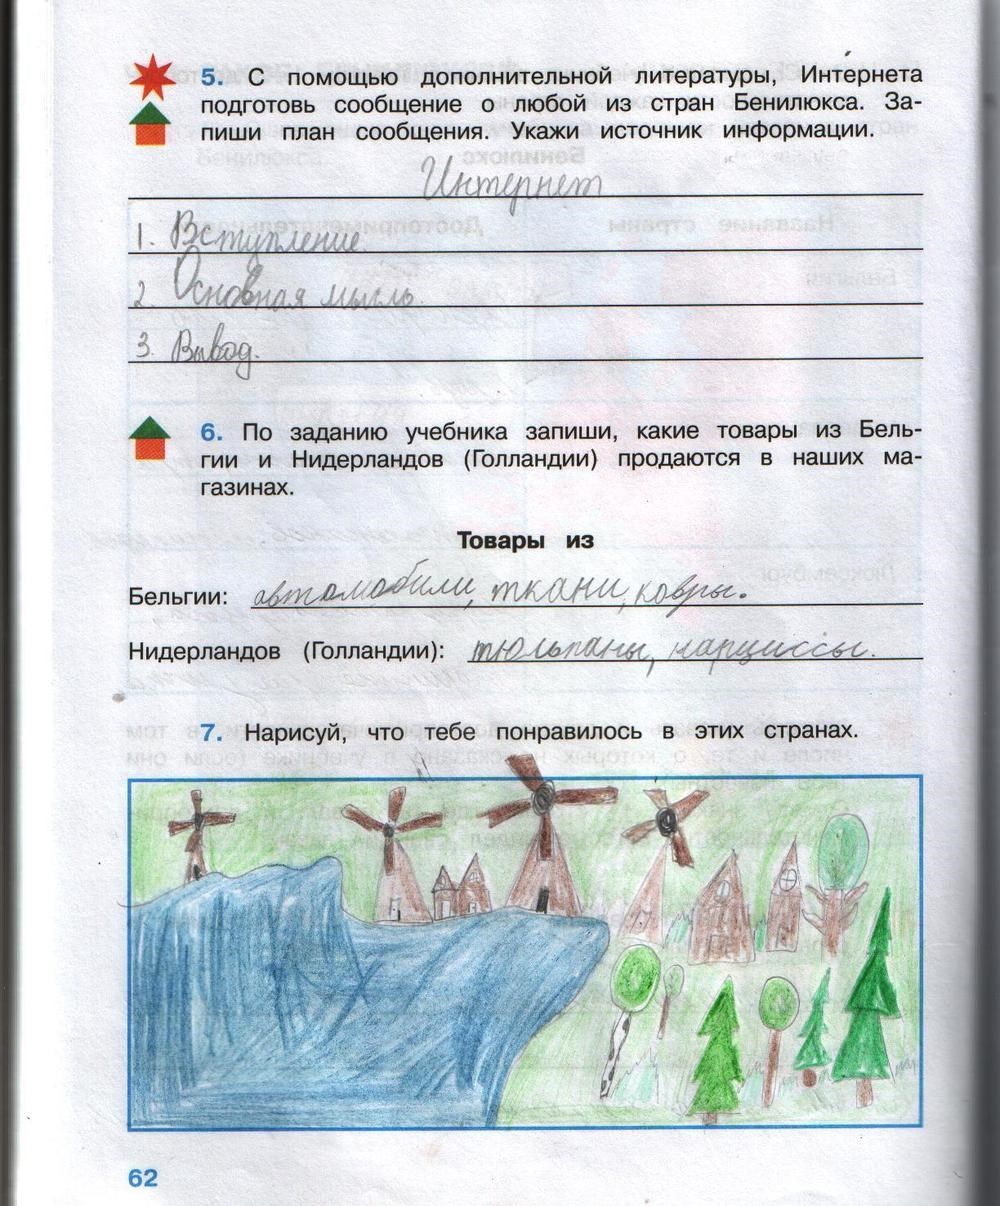 5. С помощью дополнительной литературы, Интернета
подготовь сообщение о любой из стран Бенилюкса. За-
пиши план сообщения. Укажи источник информации.
Интернет
1. Вступление.
2. Основная мысль.
3. Вывод.
6. По заданию учебника запиши, какие товары из Бель-
гии и Нидерландов (Голландии) продаются в наших ма-
газинах.
Товары из
Бельгии: автомобили, ткани, ковры.
Нидерландов (Голландии): тюльпаны, нарциссы.
7. Нарисуй, что тебе понравилось в этих странах.
62